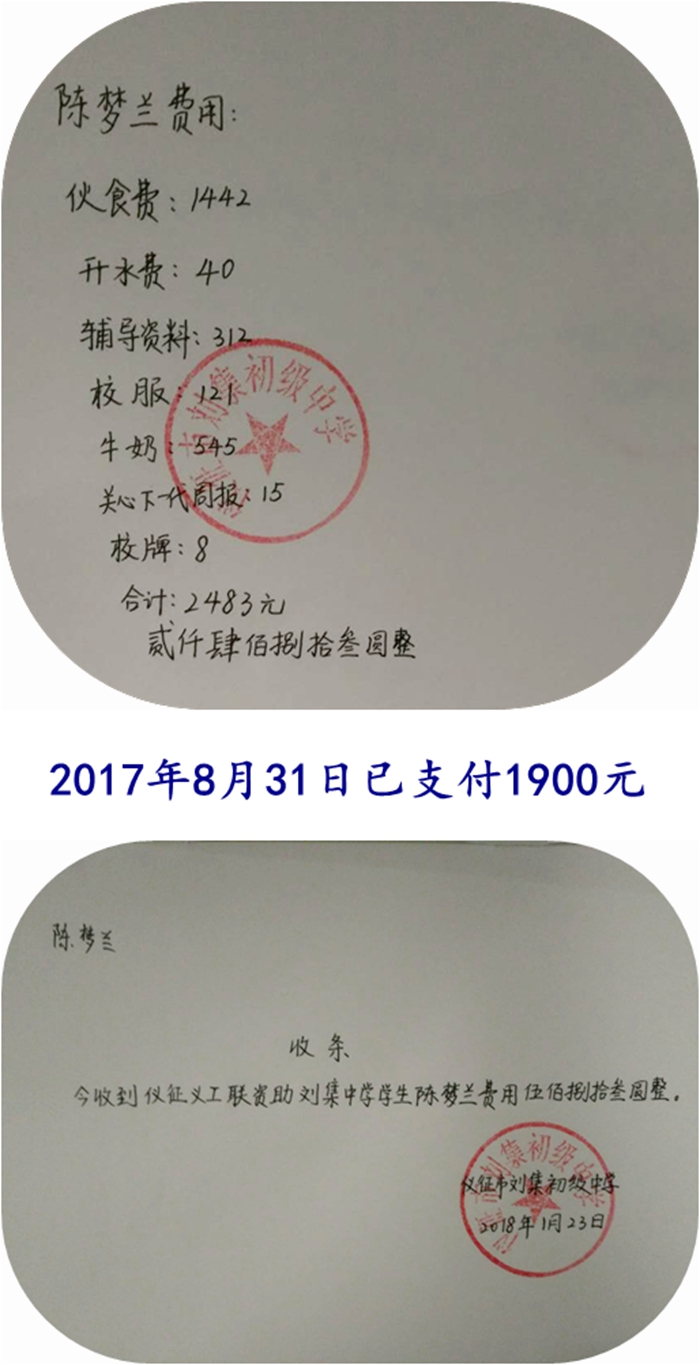 陈梦兰费用:
伙食费: 1442
开水费: 40
辅导资料: 312
校服: 121
牛奶: 545
关心下一代周报: 15
校牌: 8
合计: 2483元
贰仟肆佰捌拾叁圆整
仪征市刘集初级中学
2017年8月31日已支付1900元
陈梦兰
收条
今收到仪征义工联资助刘集中学学生陈梦兰费用伍佰捌拾叁圆整。
仪征市刘集初级中学
2018年1月23日
仪征市刘集初级中学